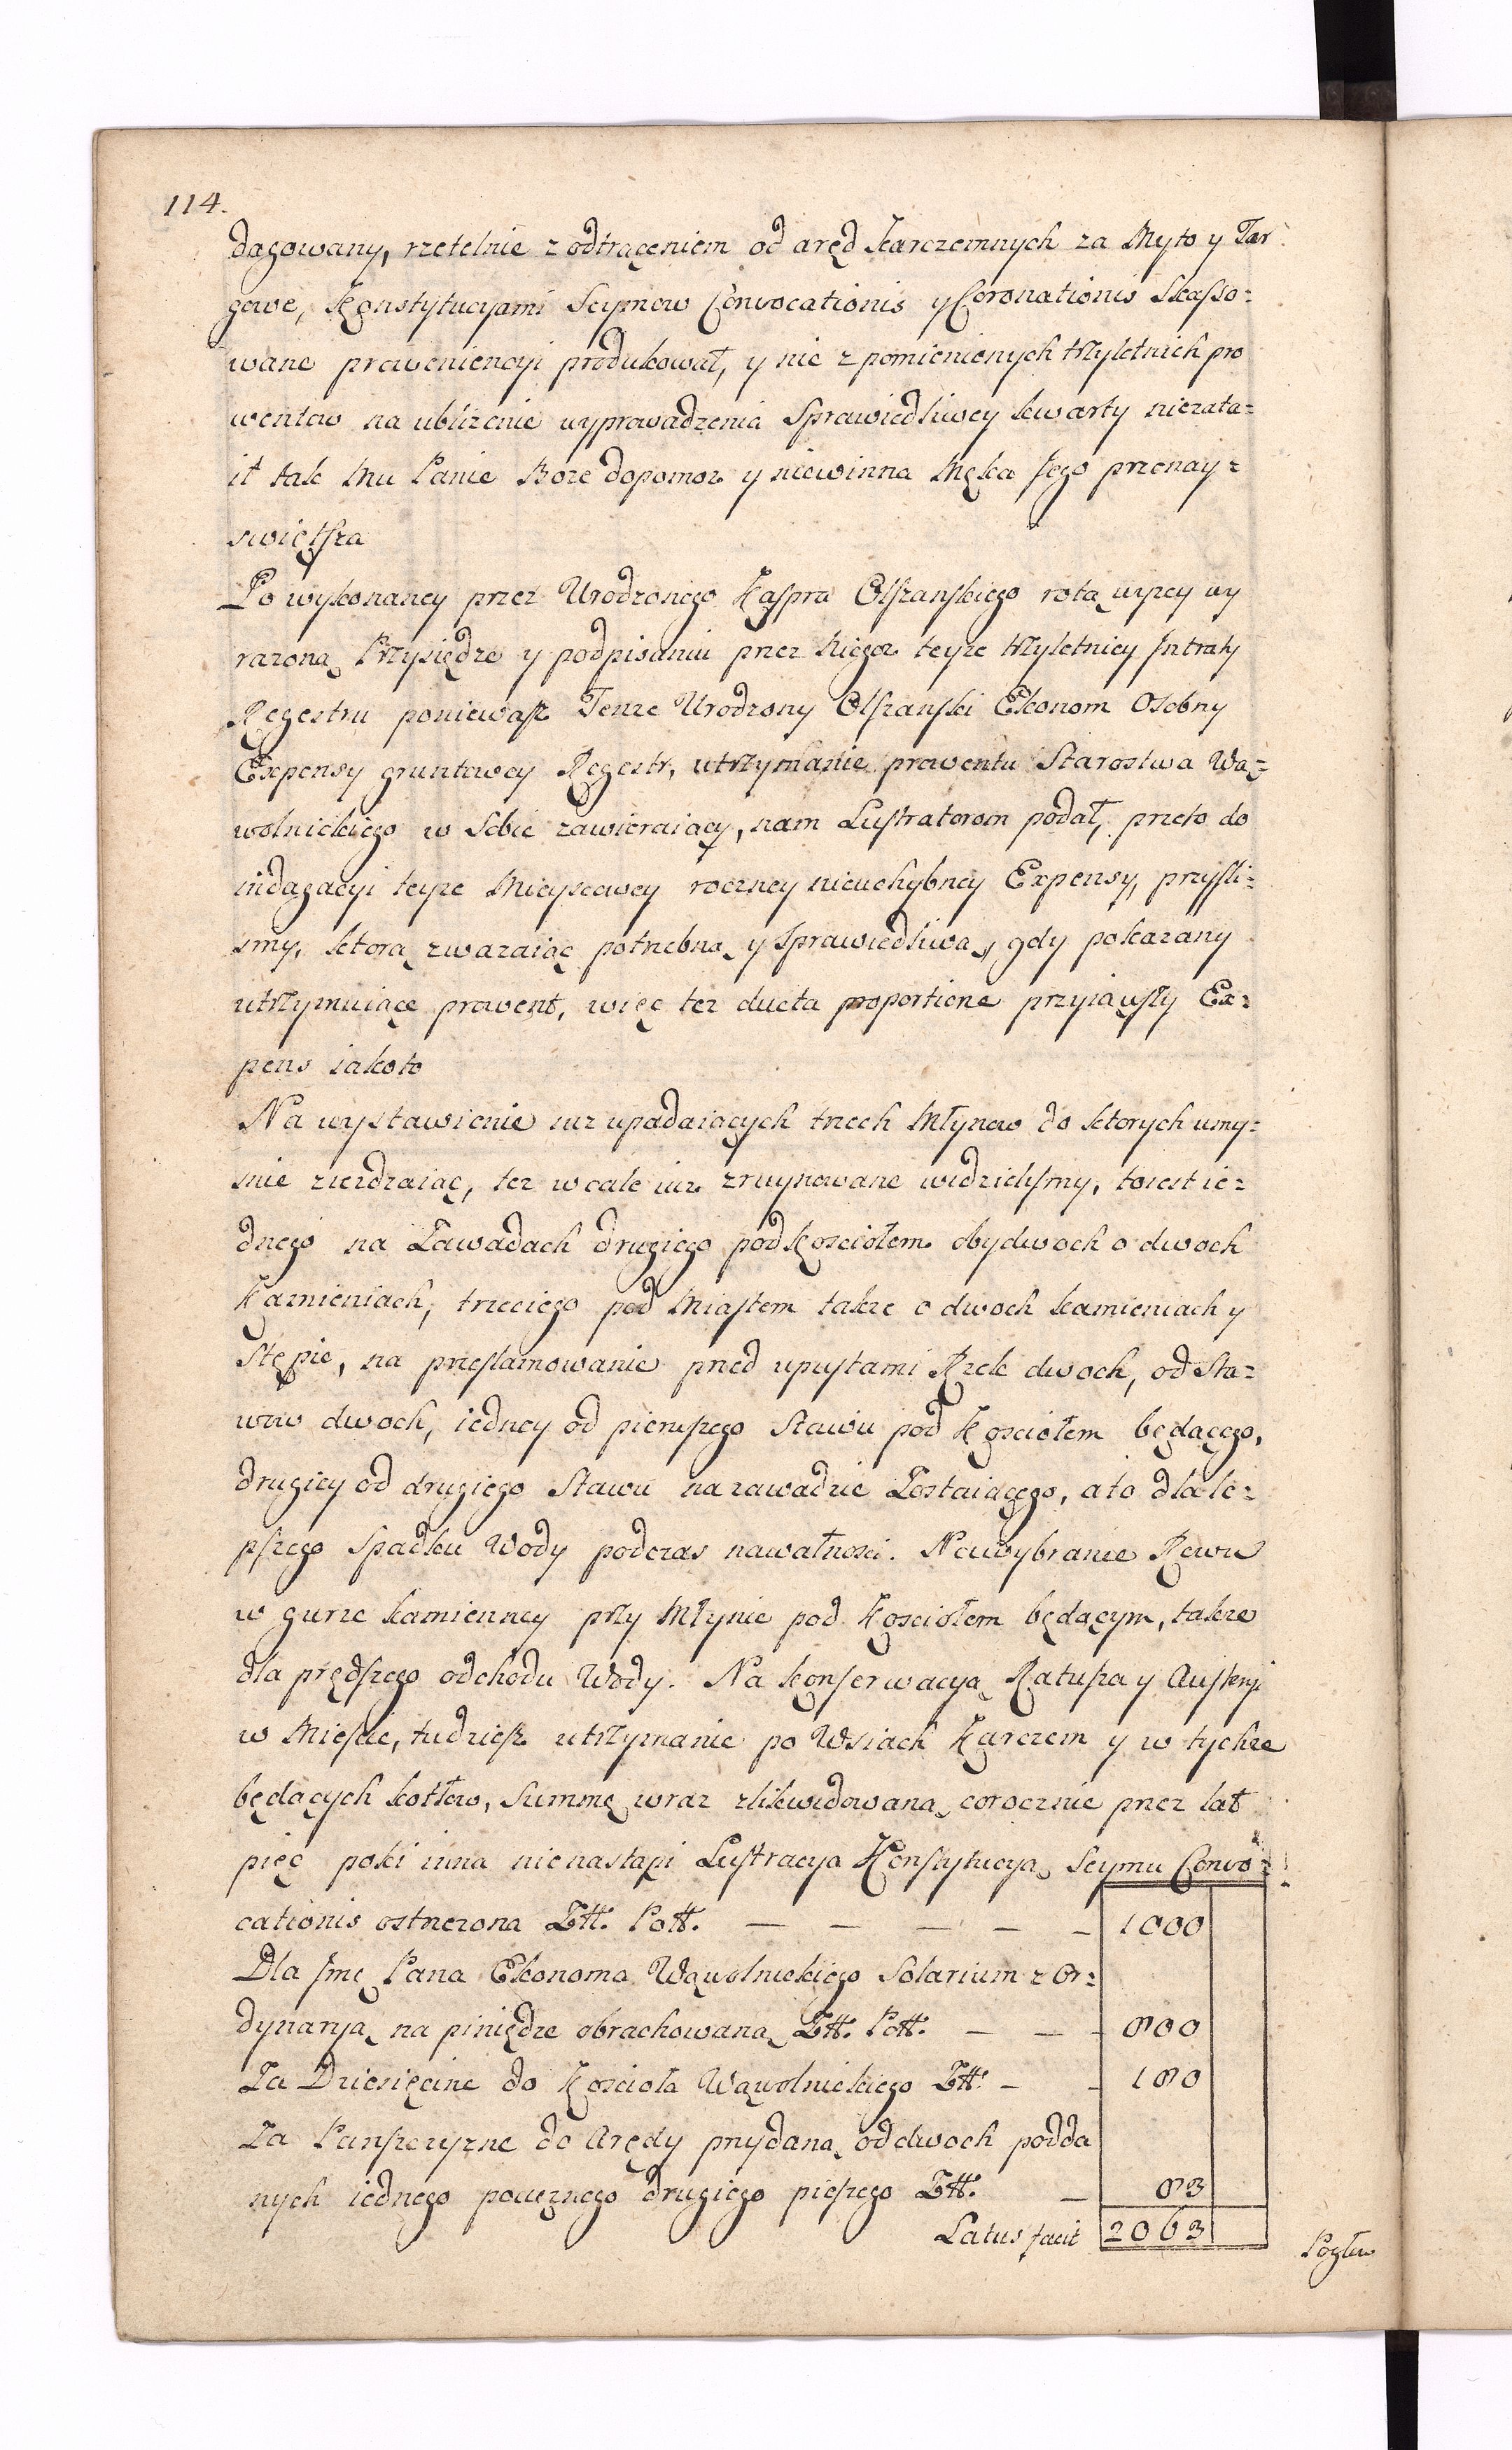 114.
dagowany, rzetelnie z odtrąceniem od aręd karczemnych za Myto y Tar
gowe, Konstytucyami Seymow Convocationis y Coronationis skasso=
wane proweniencyi produkował, y nic z pomienionych trzyletnich pro
wentow na ubliżenie wyprowadzenia Sprawiedliwey kwarty niezata=
ił tak Mu Panie Boze dopomoz y niewinna Męka Jego przenay=
swiętsza
Po wykonaney przez Urodzonego Kaspra Olszanskiego rotą wyzey wy
razoną Przysiędze y podpisaniu przez Niego teyze trzyletniey Intraty
Regestru poniewasz Tenze Urodzony Olszanski Ekonom Osobny
Expensy gruntowey Regestr, utrzymanie prowentu Starostwa Wą=
wolnickiego w Sobie zawieraiący, nam Lustratorom podał, przeto do
indagacyi teyze Mieyscowey roczney nieuchybney Expensy, przyszli=
smy, ktorą zwazaiąc potrzebną y sprawiedliwą, gdy pokazany
utrzymuiące prowent, więc tez ducta proportione przyiąwszy Ex=
pens iakoto
Na wystawienie iuz upadaiących trzech Młynow do ktorych umy=
snie ziezdzaiąc, tez wcale iuz zruynowane widzielismy, toiest ie=
dnego na Zawadach drugiego pod Kosciołem obydwoch o dwoch
Kamieniach, trzeciego pod Miastem takze o dwoch kamieniach y
Stępie, na przeslamowanie przed upustami Rzek dwoch, od Sta=
wow dwoch, iedney od pierwszego Stawu pod Kosciołem będącego,
drugiey od drugiego Stawu na zawadzie Zostaiącego, a to dla le=
pszego Spadku Wody podczas nawałnosci. Na wybranie Rowu
w gurze kamienney przy Młynie pod Kosciołem będącym, takze
dla prędszego odchodu Wody. Na konserwacyą Ratusza y Austeryi
w Miescie, tudziesz utrzymanie po Wsiach Karczem y w tychze
będących kotłow, Summę wraz zlikwidowaną corocznie przez lat
pięc poki inna nienastąpi Lustracya Konstytucyą Seymu Convo=
cationis ostrzezona Złł. Poll. — — — — — 1000
Dla Jmc Pana Ekonoma Wąwolnickiego Solarium z Or=
dynaryą na piniędze obrachowaną Złł. Poll. — — — 800
Za Dziesięcine do Koscioła Wąwolnickiego Złł. — — 180
Za Panszczyzne do Arędy przydaną od dwoch podda
nych iednego pociężnego drugiego pieszego Złł. — 83
Latus facit 2063